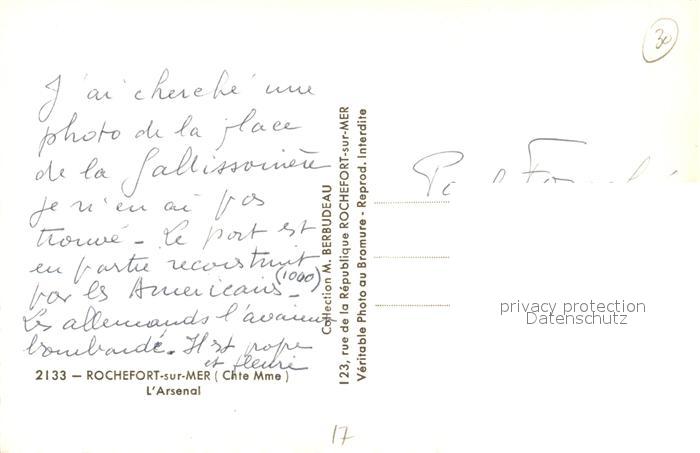 30
J'ai cherché une
photo de la place
de la Gallissonière
je n'en ai pas
trouvé - Le port est
en partie reconstruit
par les Americains (1000) -
Les allemands l'avaient
bombardé. Il est propre
et fleuri
2133 — ROCHEFORT-sur-MER ( Chte Mme )
L'Arsenal
Collection M. BERBUDEAU
123, rue de la République ROCHEFORT-sur-MER
Véritable Photo au Bromure - Reprod. Interdite
privacy protection
Datenschutz
17